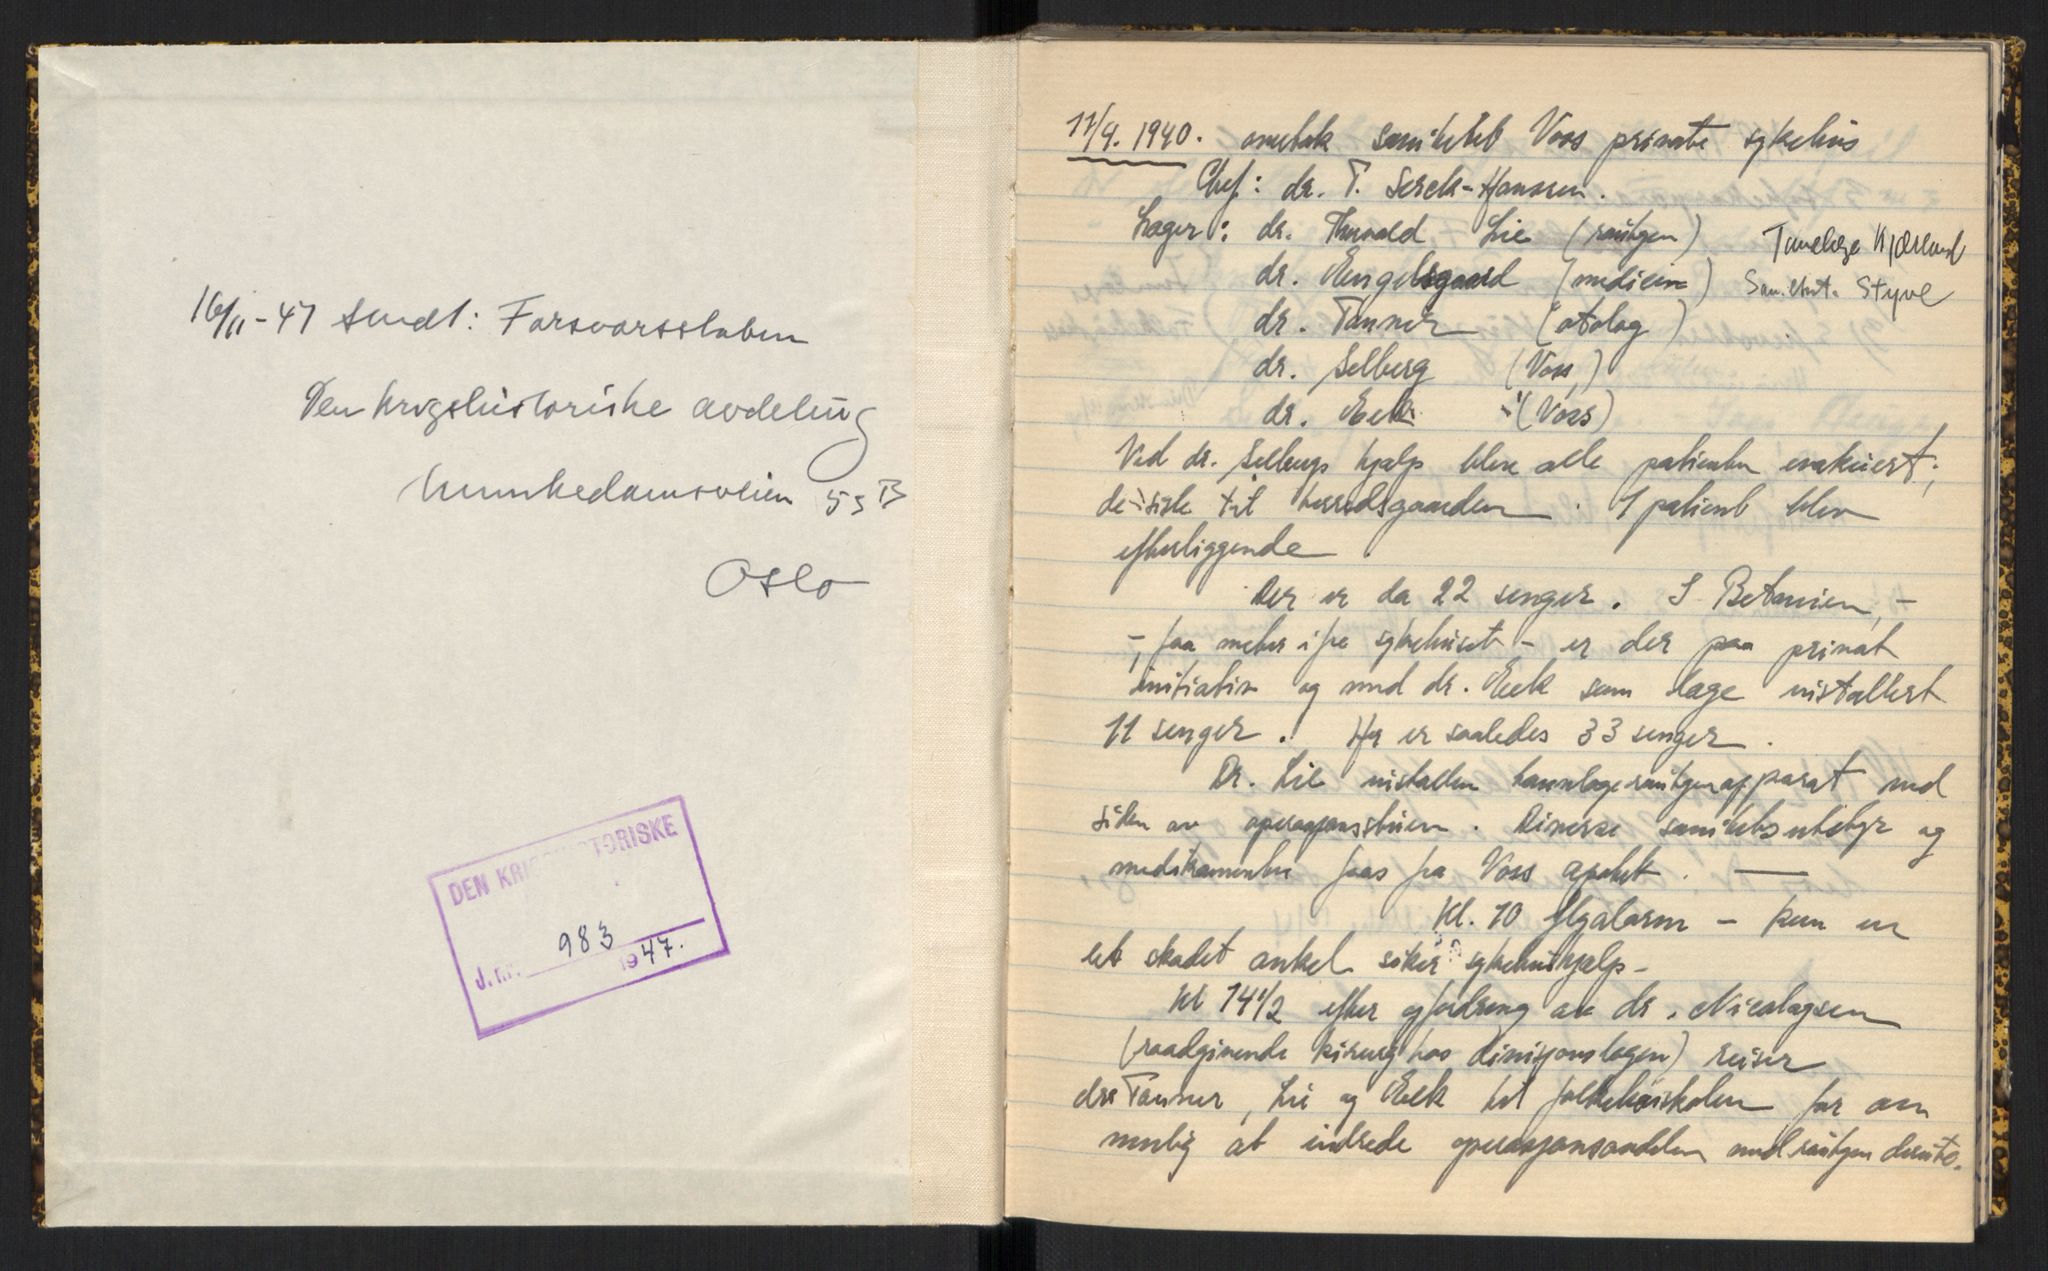 16/11-47 sendt: Forsvarsstaben
Den krigshistoriske avdeling
Munkedamsveien 53 B
Oslo
DEN KRIGSHISTORISKE
J. nr. 983 1947.
11/4. 1940. sanitetet Voss private sykehus
Chef: dr. T. Serck-Hanssen.
Læger: dr. Thorvald Lie (røntgen) Tannlæge Kjærland
dr. Engelsgaard (medicin) San.løtn. Styve
dr. Tanner (otolog)
dr. Selberg (Voss)
dr. Eek (Voss)
Ved dr. Selbergs hjælp blev alle patienter evakuert;
de siste til herredsgaarden. 1 patient blev
efterliggende
Der er da 22 senger. I Betanien, -
-, faa meter ifra sykehuset - er der paa privat
initiativ og med dr. Eek som læge installert
11 senger. Her er saaledes 33 senger.
Dr. Lie installer tannlægerøntgenapparat ved
siden av operasjonsstuen. Diverse sanitetsutstyr og
medikamenter faas fra Voss apotek. —
Kl. 10 flyalarm - kun en
let skadet ankel søker sykehushjælp -
Kl 14 1/2 efter opfordring av dr. Nicolaysen
(raadgivende kirurg hos divisjonslægen) reiser
drs Tanner, Lie og Eek til folkehøiskolen for om
mulig at indrede operasjonsavdelen med røntgen derute.